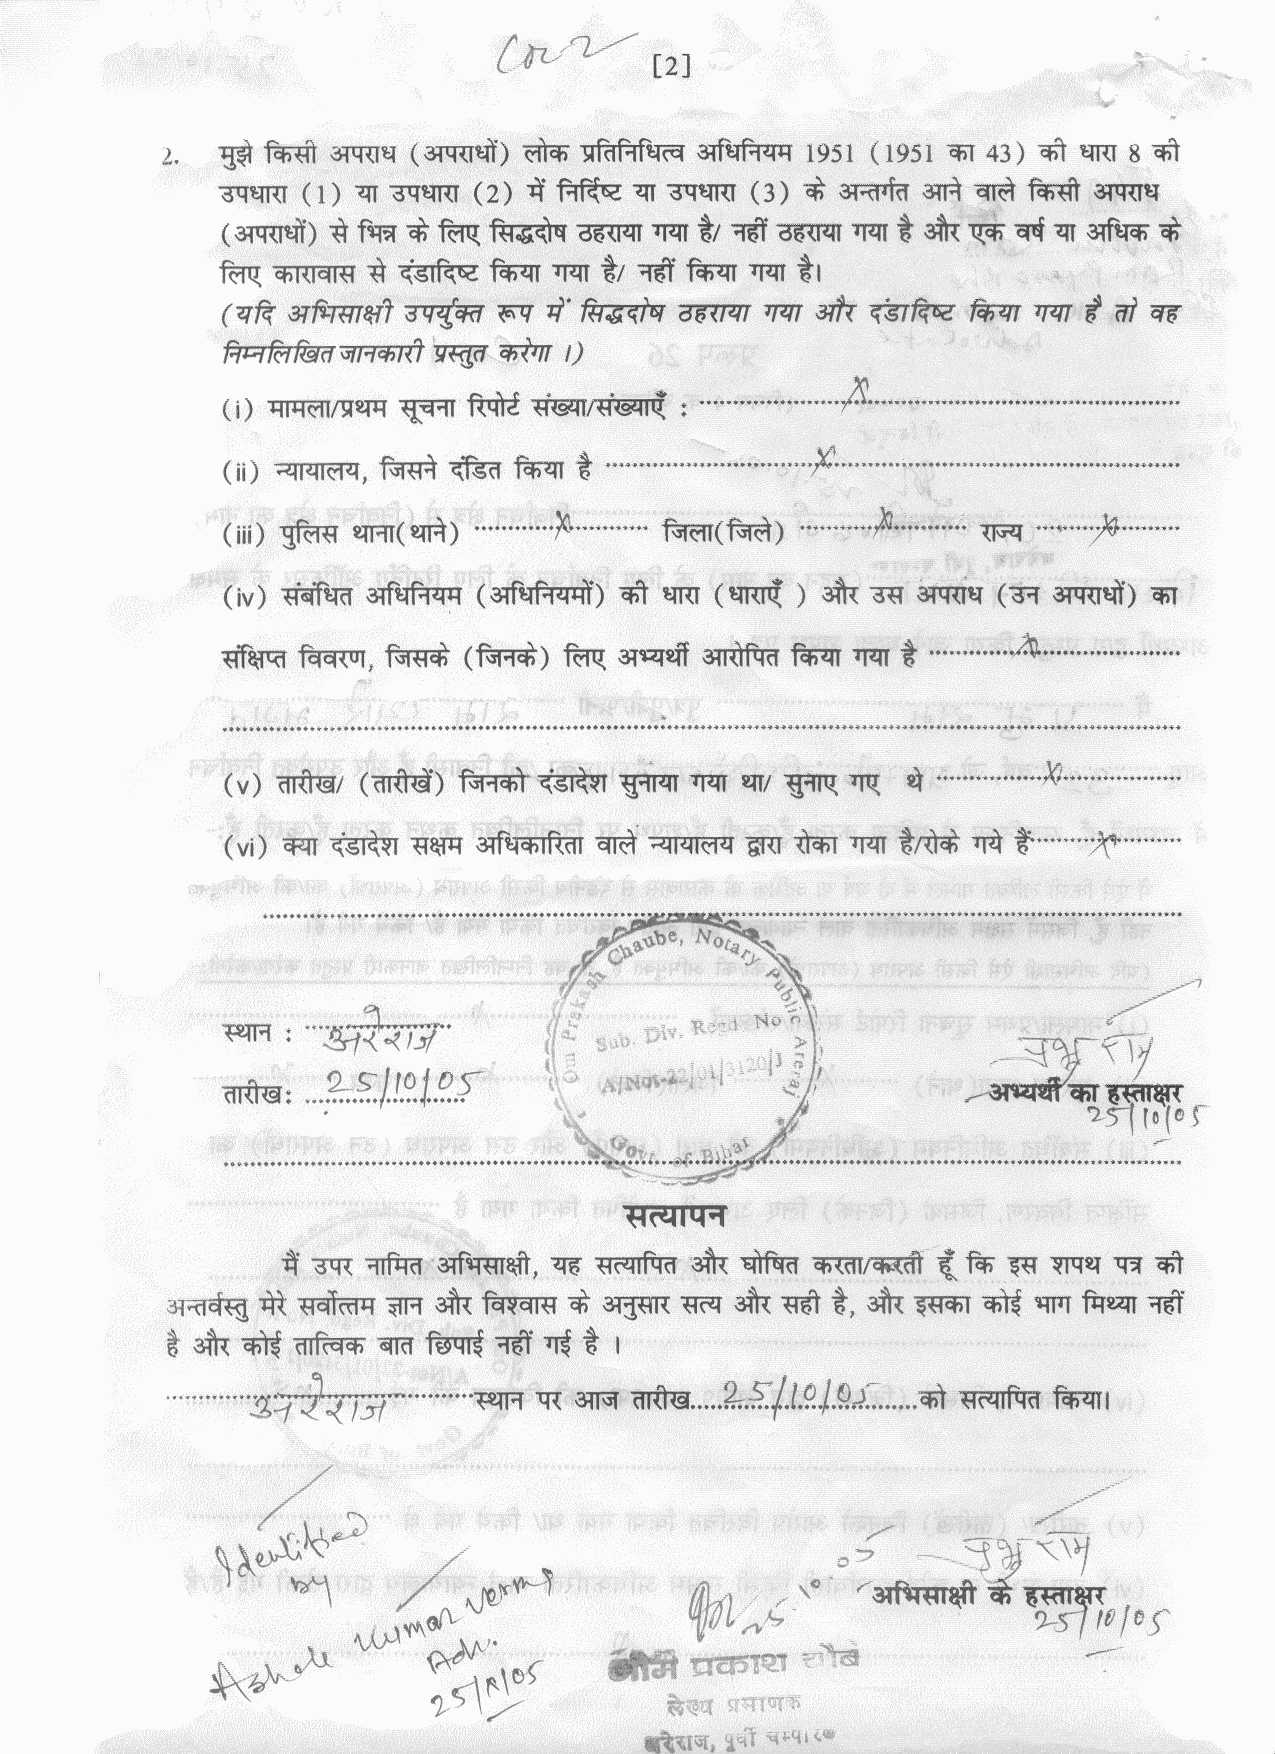 [2]
2. मुझे किसी अपराध (अपराधों) लोक प्रतिनिधित्व अधिनियम 1951 (1951 का 43) की धारा 8 की
उपधारा (1) या उपधारा (2) में निर्दिष्ट या उपधारा (3) के अन्तर्गत आने वाले किसी अपराध
(अपराधों) से भिन्न के लिए सिद्धदोष ठहराया गया है/ नहीं ठहराया गया है और एक वर्ष या अधिक के
लिए कारावास से दंडादिष्ट किया गया है/ नहीं किया गया है।
(यदि अभिसाक्षी उपर्युक्त रूप में सिद्धदोष ठहराया गया और दंडादिष्ट किया गया है तो वह
निम्नलिखित जानकारी प्रस्तुत करेगा ।)
(i) मामला/प्रथम सूचना रिपोर्ट संख्या/संख्याएँ : X
(ii) न्यायालय, जिसने दंडित किया है X
(iii) पुलिस थाना(थाने) X जिला(जिले) X राज्य X
(iv) संबंधित अधिनियम (अधिनियमों) की धारा (धाराएँ ) और उस अपराध (उन अपराधों) का
संक्षिप्त विवरण, जिसके (जिनके) लिए अभ्यर्थी आरोपित किया गया है X
(v) तारीख/ (तारीखें) जिनको दंडादेश सुनाया गया था/ सुनाए गए थे X
(vi) क्या दंडादेश सक्षम अधिकारिता वाले न्यायालय द्वारा रोका गया है/रोके गये हैं X
Om Prakash Chaube, Notary Public Areraj
Sub. Div. Regd No
A/Not-22/01/3120/1
Govt. of Bihar
स्थान : अरेराज
तारीख: 25/10/05
प्रभु राम
अभ्यर्थी का हस्ताक्षर
25/10/05
सत्यापन
मैं उपर नामित अभिसाक्षी, यह सत्यापित और घोषित करता/करती हूँ कि इस शपथ पत्र की
अन्तर्वस्तु मेरे सर्वोत्तम ज्ञान और विश्वास के अनुसार सत्य और सही है, और इसका कोई भाग मिथ्या नहीं
है और कोई तात्विक बात छिपाई नहीं गई है ।
अरेराज स्थान पर आज तारीख 25/10/05 को सत्यापित किया।
Identified
by
Ashok Kumar Verma
Adv.
25/10/05
25.10.05
प्रभु राम
अभिसाक्षी के हस्ताक्षर
25/10/05
ओम प्रकाश चौबे
लेख्य प्रमाणक
अरेराज, पूर्वी चम्पारण